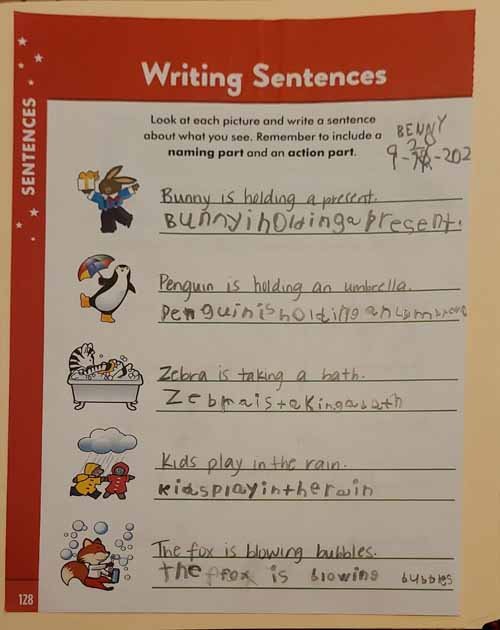 Writing Sentences
SENTENCES
Look at each picture and write a sentence
about what you see. Remember to include a
naming part and an action part.
BENNY
Bunny is holding a present.
Bunnyiholdingapresent.
Penguin is holding an umbrella.
Penguinisholding an
Zebra is taking a bath.
Zebraistakingabath
Kids play in the rain.
kidsplayintherain
The fox is blowing bubbles.
the fox is blowing bubbles
128